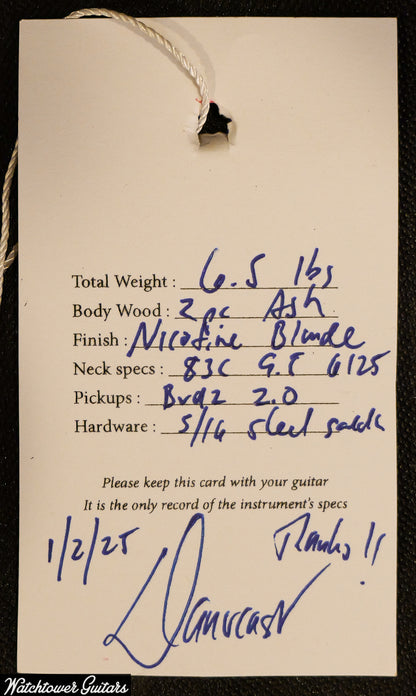 Total Weight : 6.5 lbs
Body Wood : 2 pc Ash
Finish : Nicotine Blonde
Neck specs : 83C 9.5 6125
Pickups : Br82 2.0
Hardware : 5/16 steel saddle
Please keep this card with your guitar
It is the only record of the instrument's specs
1/2/25 Thanks !!
Danocaster
Watchtower Guitars